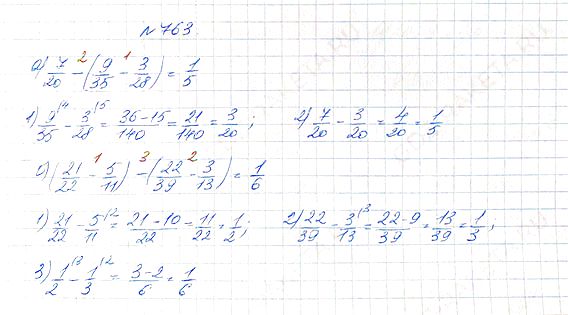 №763.
а) 7/20 - (9/35 - 3/28) = 1/5
1) 9/35 - 3/28 = 36-15/140 = 21/140 = 3/20 ; 2) 7/20 - 3/20 = 4/20 = 1/5
б) (21/22 - 5/11) - (22/39 - 3/13) = 1/6
1) 21/22 - 5/11 = 21-10/22 = 11/22 = 1/2 ; 2) 22/39 - 3/13 = 22-9/39 = 13/39 = 1/3 ;
3) 1/2 - 1/3 = 3-2/6 = 1/6